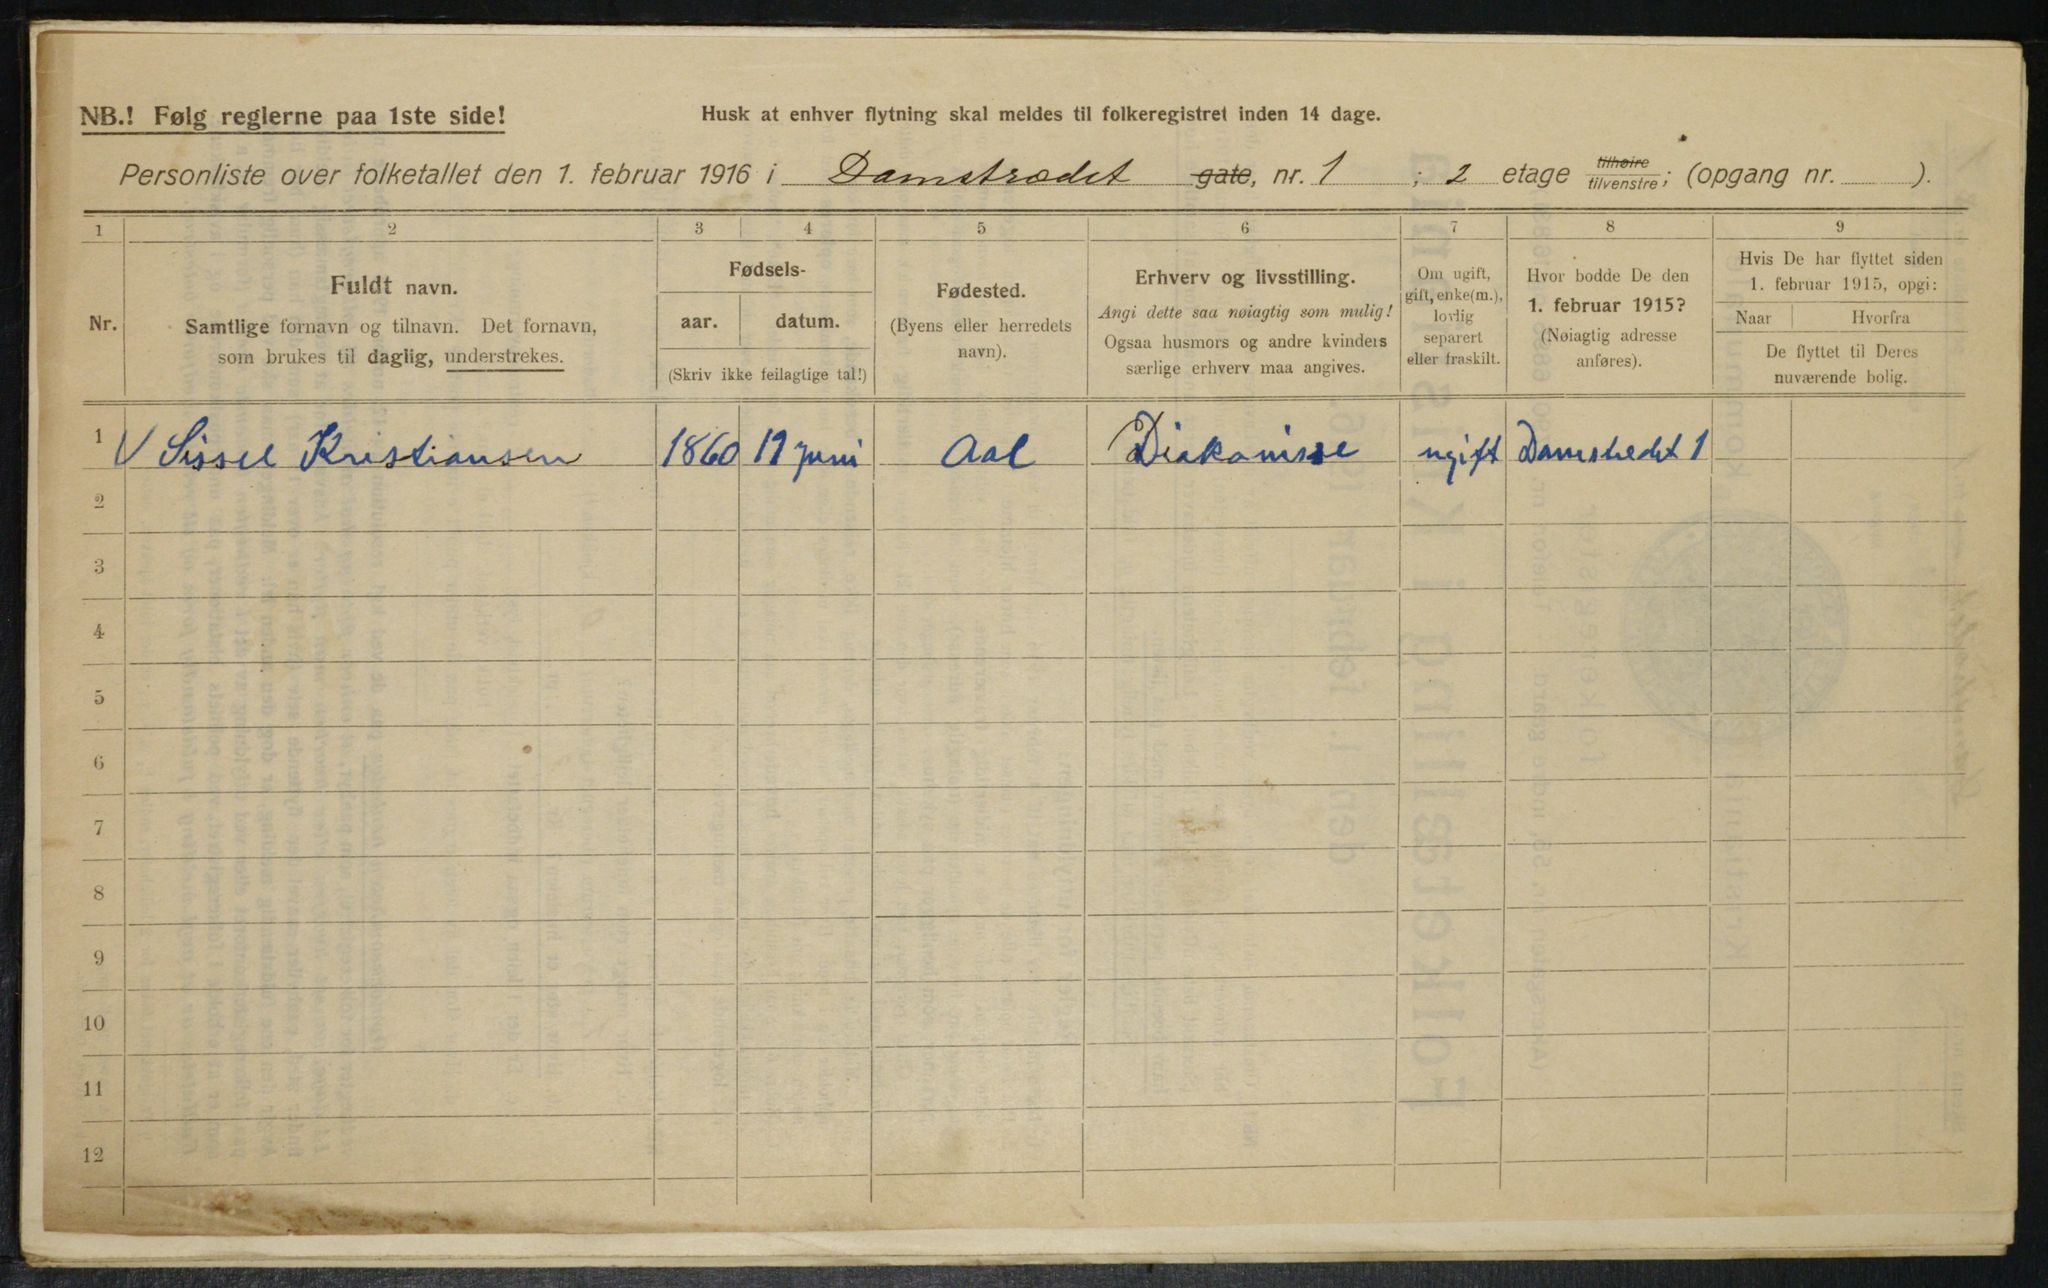 NB.! Følg reglerne paa 1ste side!
Husk at enhver flytning skal meldes til folkeregistret inden 14 dage.
Personliste over folketallet den 1. februar 1916 i Damstrædet gate, nr. 1 ; 2 etage tilhøire tilvenstre; (opgang nr. ).
1 2 3 4 5 6 7 8 9
Nr.
Fuldt navn.
Samtlige fornavn og tilnavn. Det fornavn,
som brukes til daglig, understrekes.
Fødsels-
aar. datum.
(Skriv ikke feilagtige tal!)
Fødested.
(Byens eller herredets
navn).
Erhverv og livsstilling.
Angi dette saa nøiagtig som mulig!
Ogsaa husmors og andre kvinders
særlige erhverv maa angives.
Om ugift,
gift, enke(m.),
lovlig
separert
eller fraskilt.
Hvor bodde De den
1. februar 1915?
(Nøiagtig adresse
anføres).
Hvis De har flyttet siden
1. februar 1915, opgi:
Naar Hvorfra
De flyttet til Deres
nuværende bolig.
1 Sissel Kristiansen 1860 19 juni Aal Diakonisse ugift Damstredet 1
2
3
4
5
6
7
8
9
10
11
12